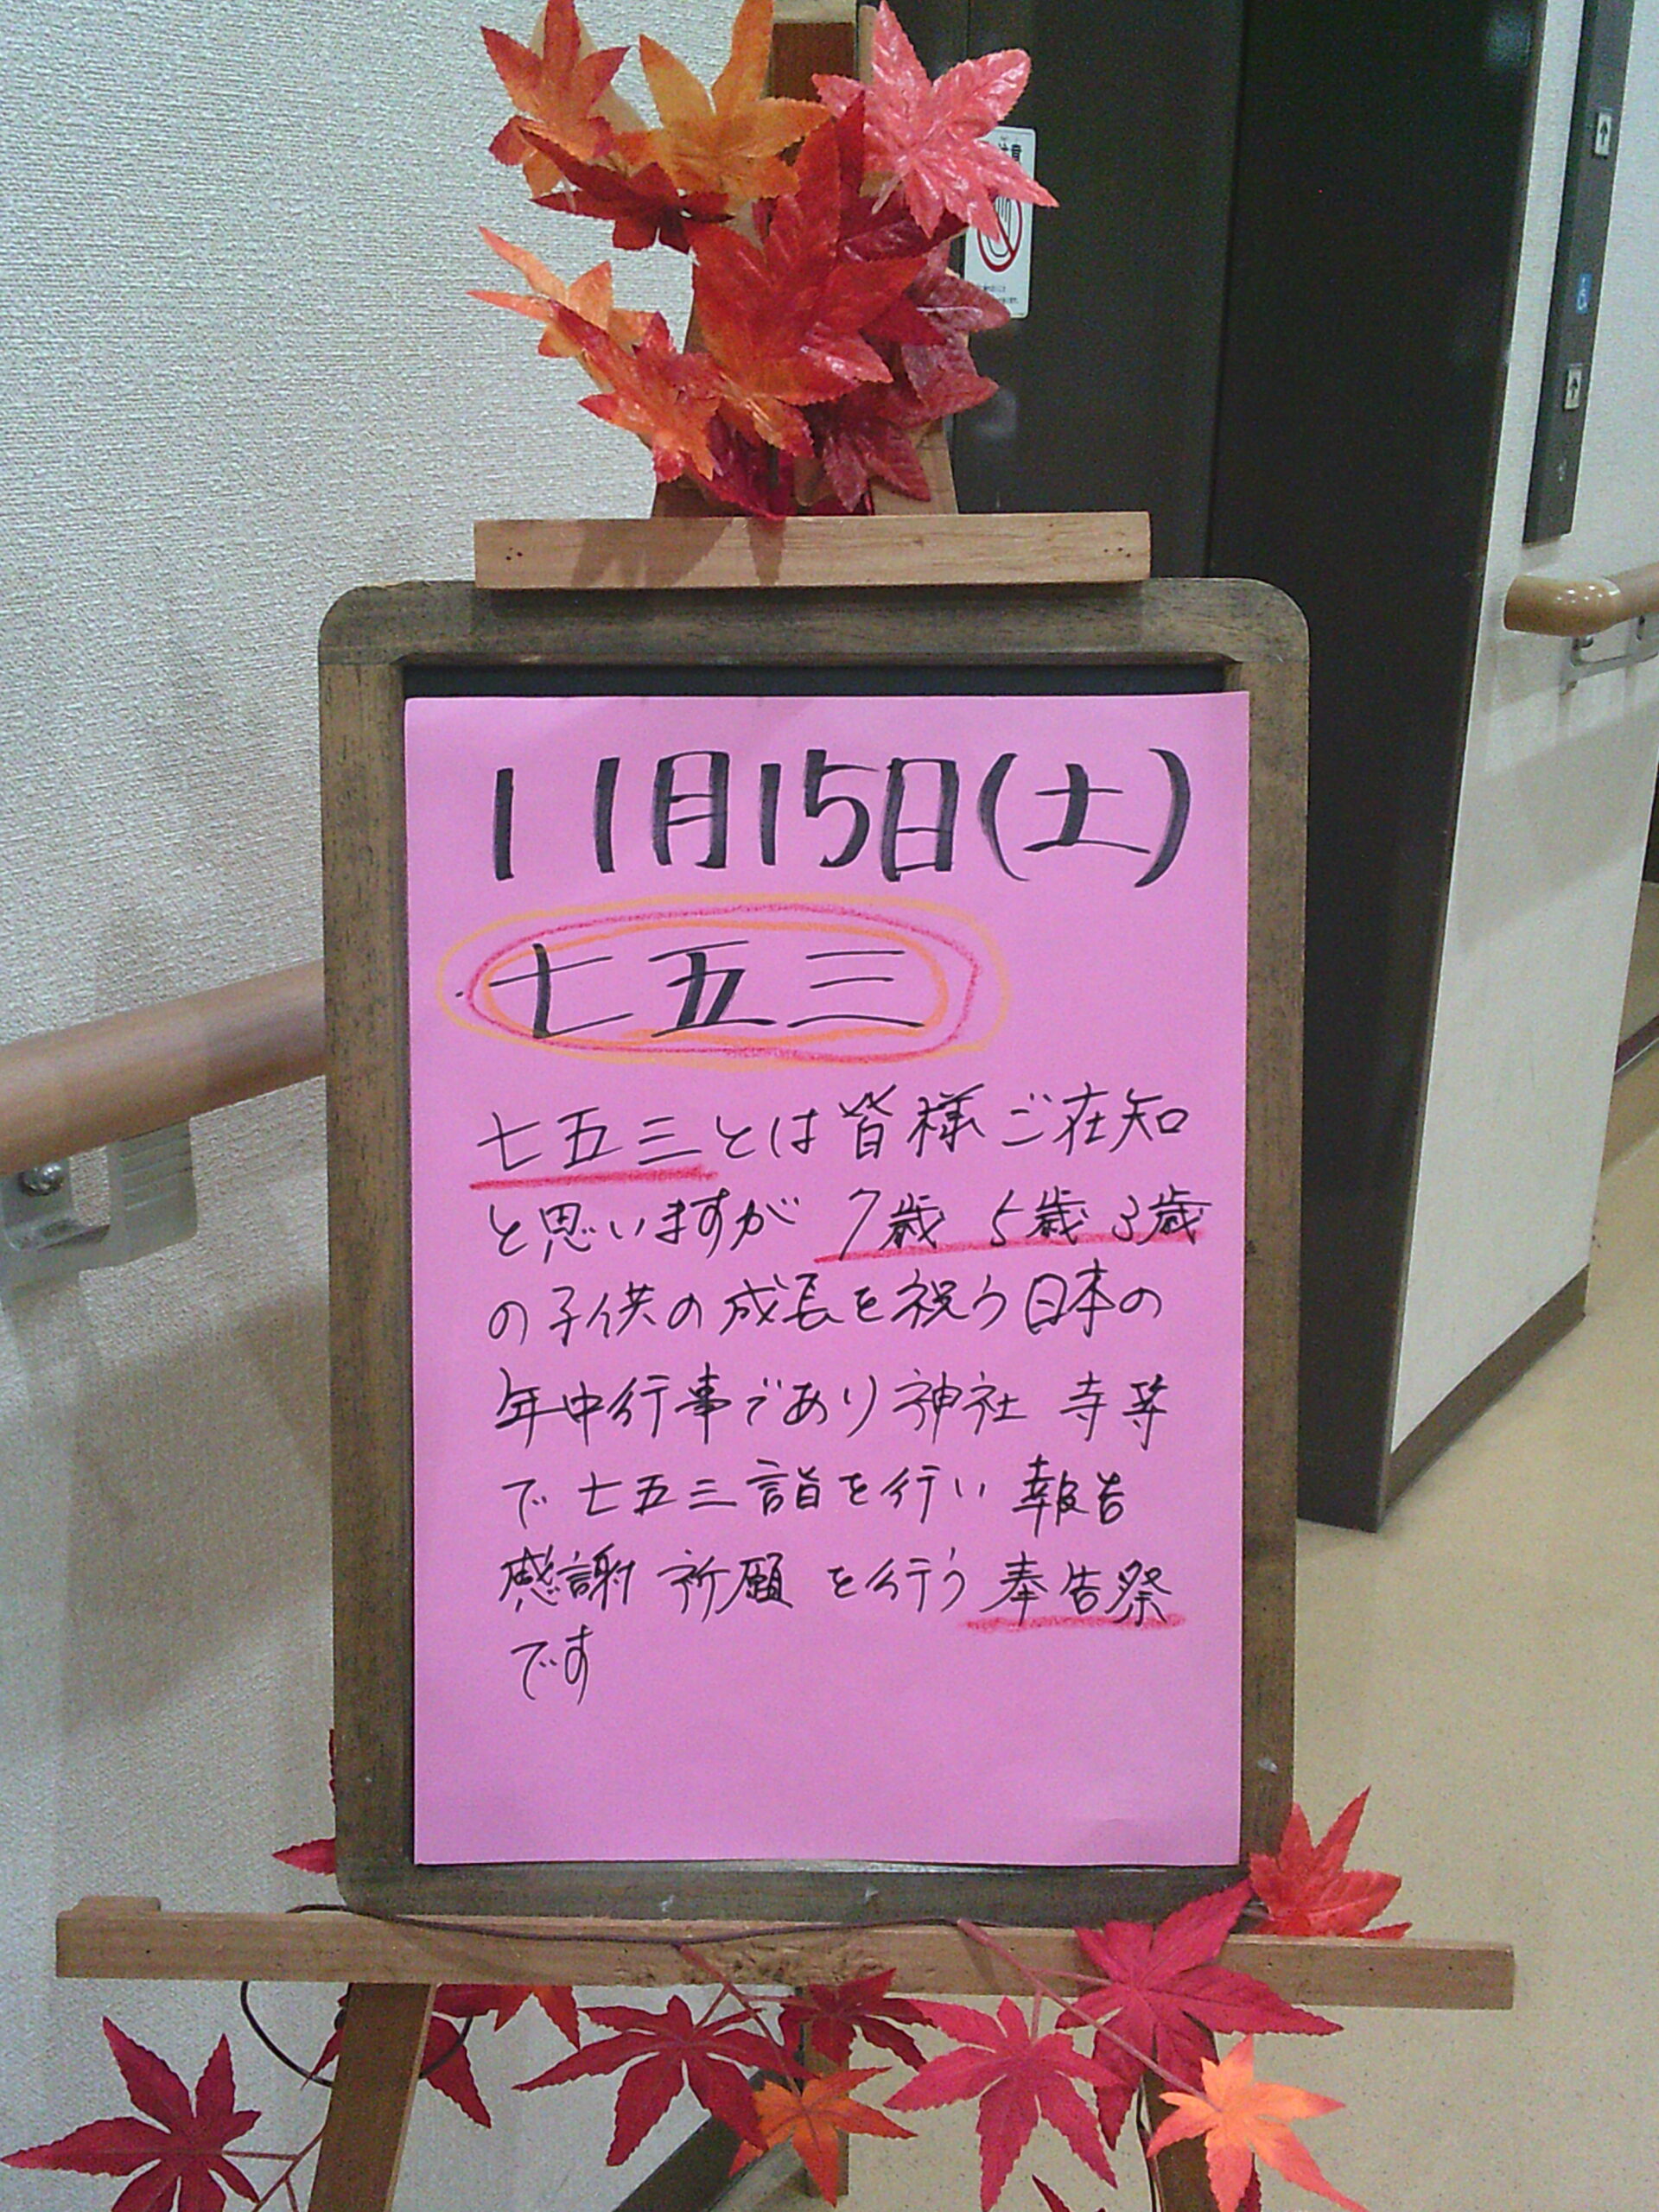 注意
11月15日(土)
七五三
七五三とは皆様ご在知
と思いますが 7歳 5歳 3歳
の子供の成長を祝う日本の
年中行事であり神社 寺等
で 七五三詣を行い 報告
感謝 祈願 を行う 奉告祭
です